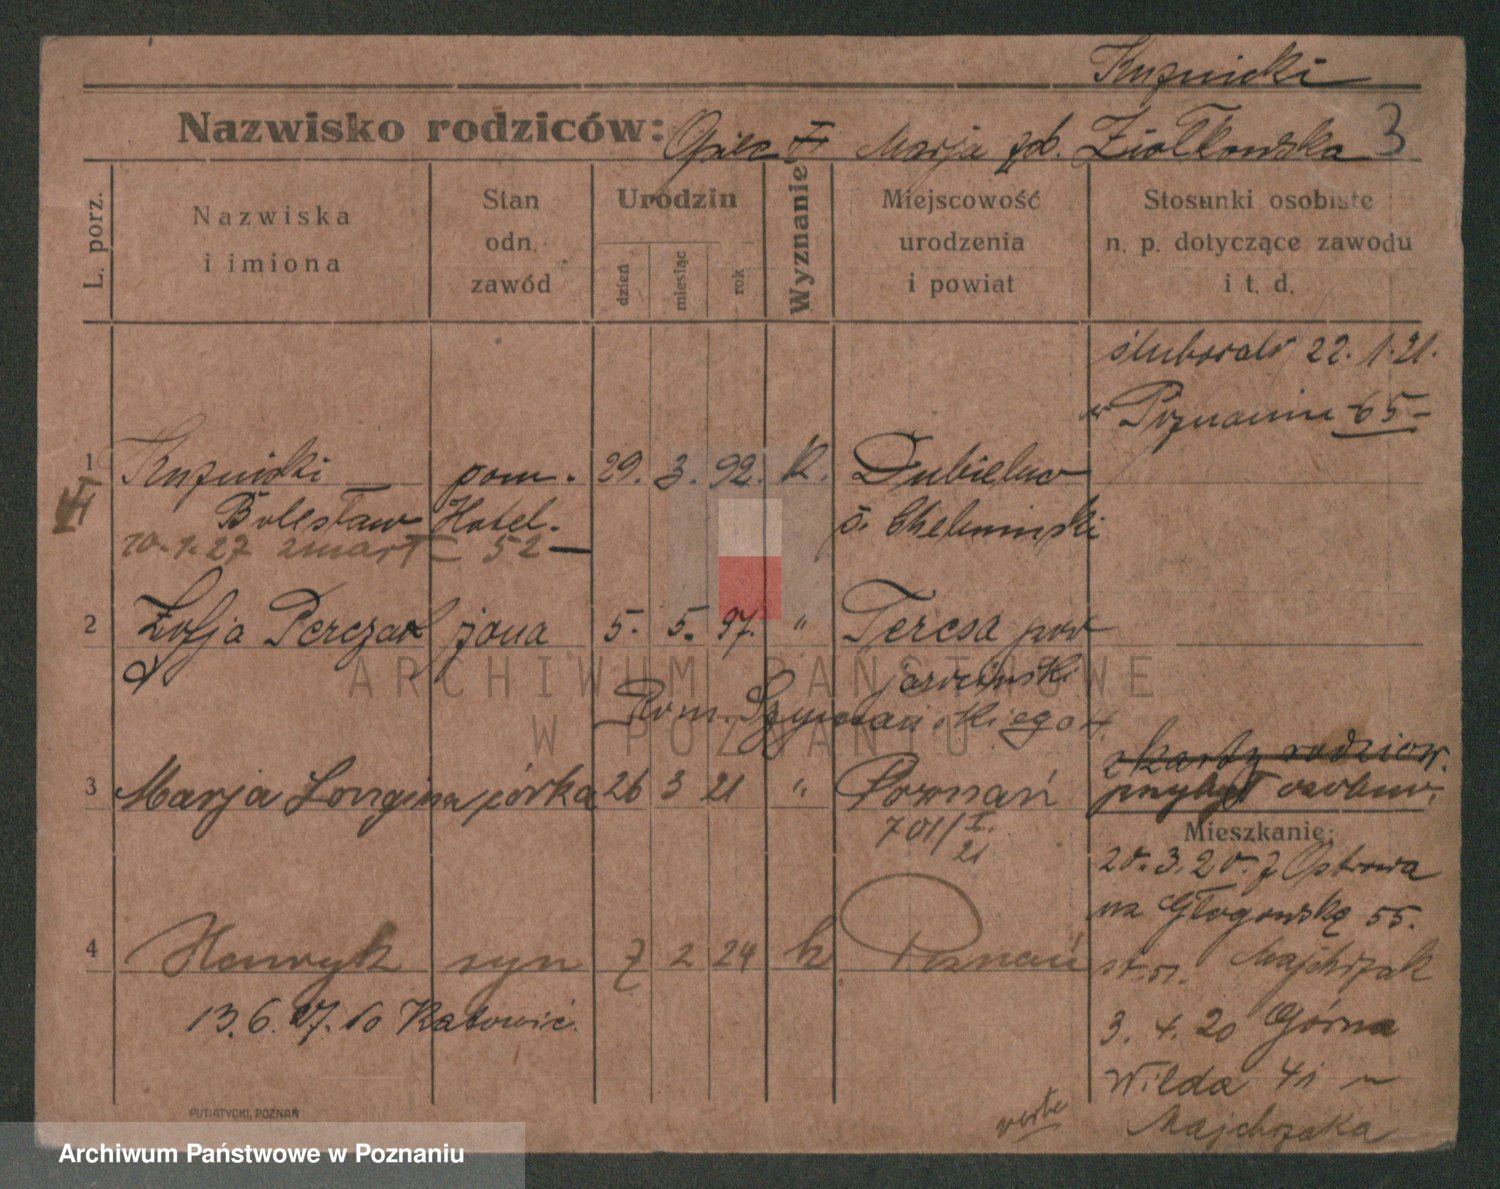 Kuznicki
Nazwisko rodziców: Marja zob. Ziółkowska 3
L. porz.
Nazwiska i imiona
Stan odn. zawód
Urodzin
dzień miesiąc rok
Wyznanie
Miejscowość urodzenia i powiat
Stosunki osobiste n. p. dotyczące zawodu i t. d.
22. 1. 21.
w Poznaniu 65
1 Kuznicki pom. 29. 3. 92. k.
Bolesław Hotel.
10.1.27 zmarł 52
2 Zofja żona 5. 5. 97. " Teresa pow
jarociński
3 Marja Longina córka 26 3 21 " Poznań
z karty rodziców.
przybył osobno.
701/I.
21
Mieszkanie:
20.3.20. z Ostrowa
na Głogowską 55.
Majchrzak
4 Henryk syn 7 2 24 k Poznań
13.6.27. do Katowic
3. 4. 20 Górna
Wilda 41
Majchrzaka
verte
PUTIATYCKI, POZNAŃ
ARCHIWUM PAŃSTWOWE
W POZNANIU
Archiwum Państwowe w Poznaniu